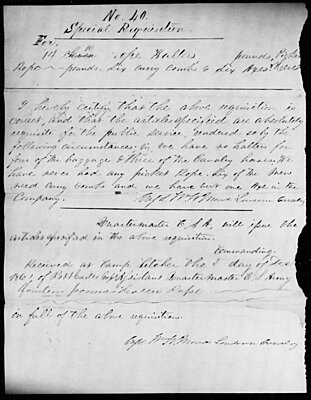 No. 40.
Special Requisition.
For
14 Rope Halters, pounds, Picket
Rope — pounds. Six curry Combs & Six Axes
I hereby certify that the above requisition is
correct, and that the articles specified are absolutely
requisite for the public service, rendered so by the
following circumstances: viz we have no halters for
four of the baggage & three of the Cavalry horses. We
have never had any picket Rope. Six of the men
need curry combs and we have but one Axe in the
Company. Capt. Wm W Mead Loudoun Cavalry
Quartermaster C, S A, will issue the
articles specified in the above requisition.
Commanding.
Received at Camp the day of Dec
186 , of Assistant Quartermaster C S Army
pounds Rope
in full of the above requisition.
Capt Wm W Mead Loudoun Cavalry